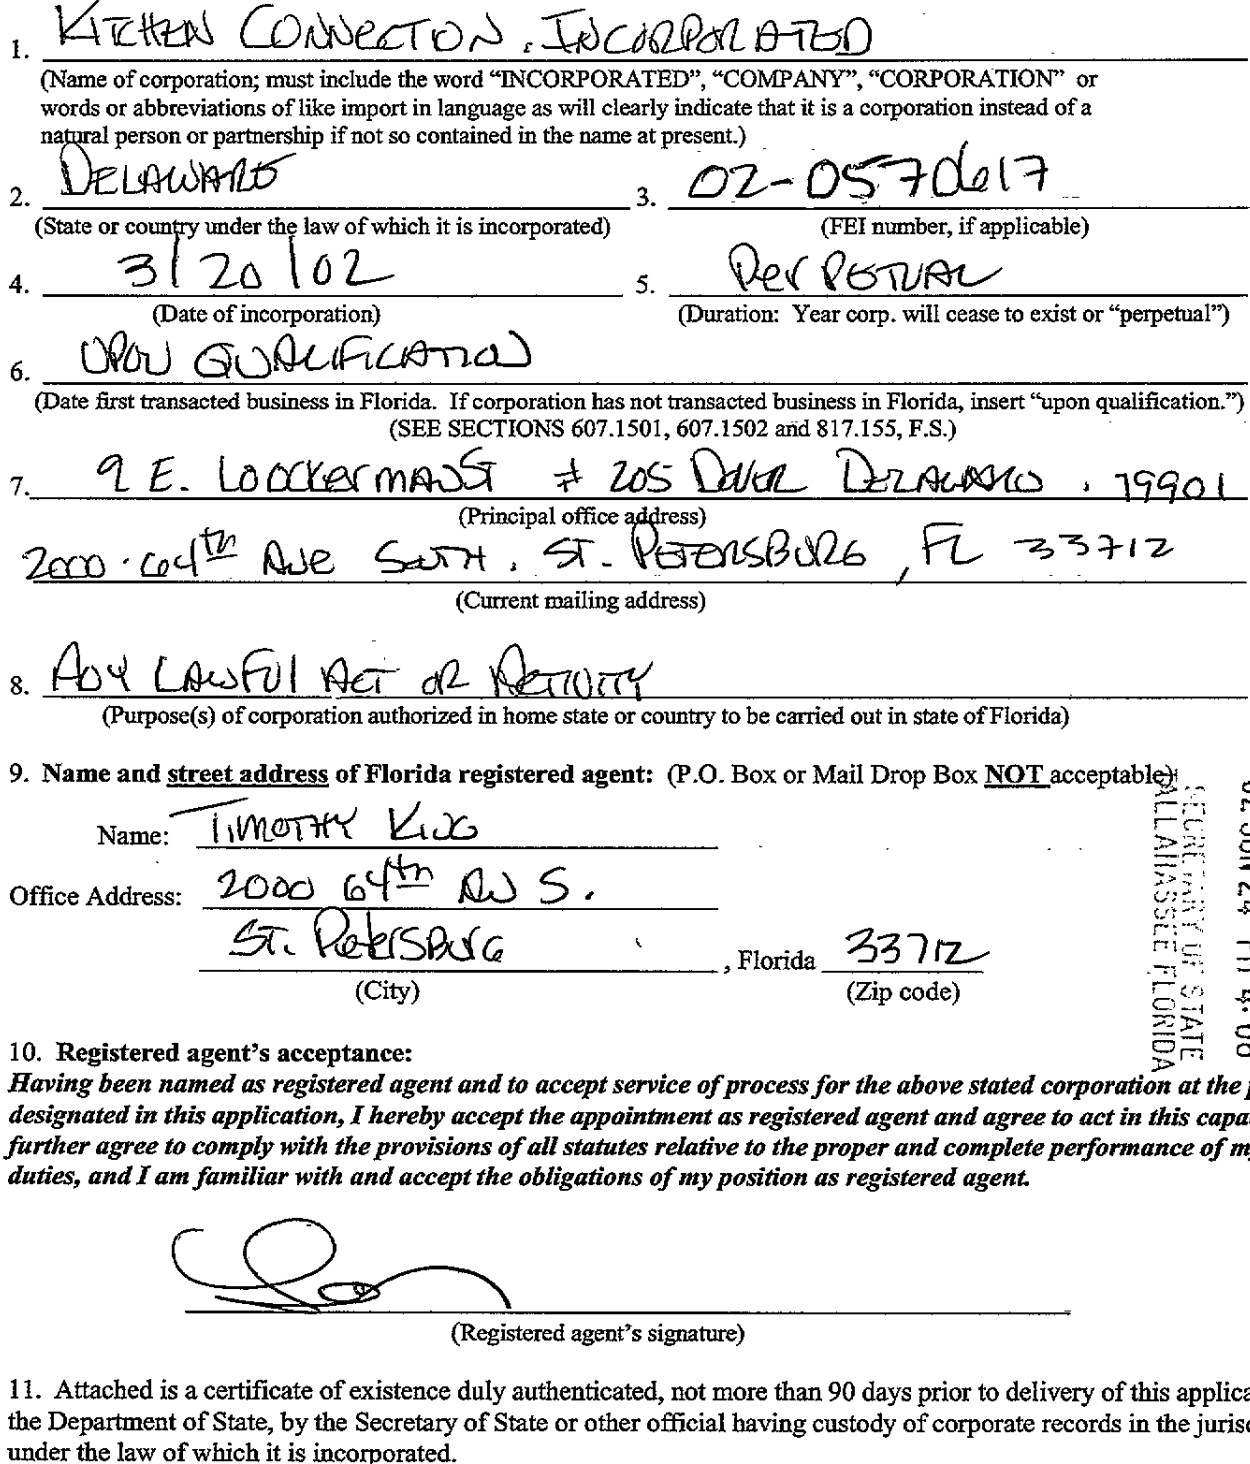 1. KITCHEN CONNECTON, INCORPORATED
(Name of corporation; must include the word "INCORPORATED", "COMPANY", "CORPORATION" or
words or abbreviations of like import in language as will clearly indicate that it is a corporation instead of a
natural person or partnership if not so contained in the name at present.)
2. DELAWARE 3. 02-0570617
(State or country under the law of which it is incorporated) (FEI number, if applicable)
4. 3/20/02 5. PerPETUAL
(Date of incorporation) (Duration: Year corp. will cease to exist or "perpetual")
6. UPON QUALIFICATION
(Date first transacted business in Florida. If corporation has not transacted business in Florida, insert "upon qualification.")
(SEE SECTIONS 607.1501, 607.1502 and 817.155, F.S.)
7. 9 E. LOOCKerMAN ST # 205 DOVER DELAWARE, 19901
(Principal office address)
2000 64th AVE SOUTH, ST. PETERSBURG, FL 33712
(Current mailing address)
8. ANY LAWFUL ACT OR ACTIVITY
(Purpose(s) of corporation authorized in home state or country to be carried out in state of Florida)
9. Name and street address of Florida registered agent: (P.O. Box or Mail Drop Box NOT acceptable)
Name: TIMOTHY KING
Office Address: 2000 64th AV S.
ST. PetersBURG, Florida 33712
(City) (Zip code)
SECRETARY OF STATE
TALLAHASSEE FLORIDA
10. Registered agent's acceptance:
Having been named as registered agent and to accept service of process for the above stated corporation at the
designated in this application, I hereby accept the appointment as registered agent and agree to act in this capa
further agree to comply with the provisions of all statutes relative to the proper and complete performance of m
duties, and I am familiar with and accept the obligations of my position as registered agent.
(Registered agent's signature)
11. Attached is a certificate of existence duly authenticated, not more than 90 days prior to delivery of this applica
the Department of State, by the Secretary of State or other official having custody of corporate records in the juris
under the law of which it is incorporated.